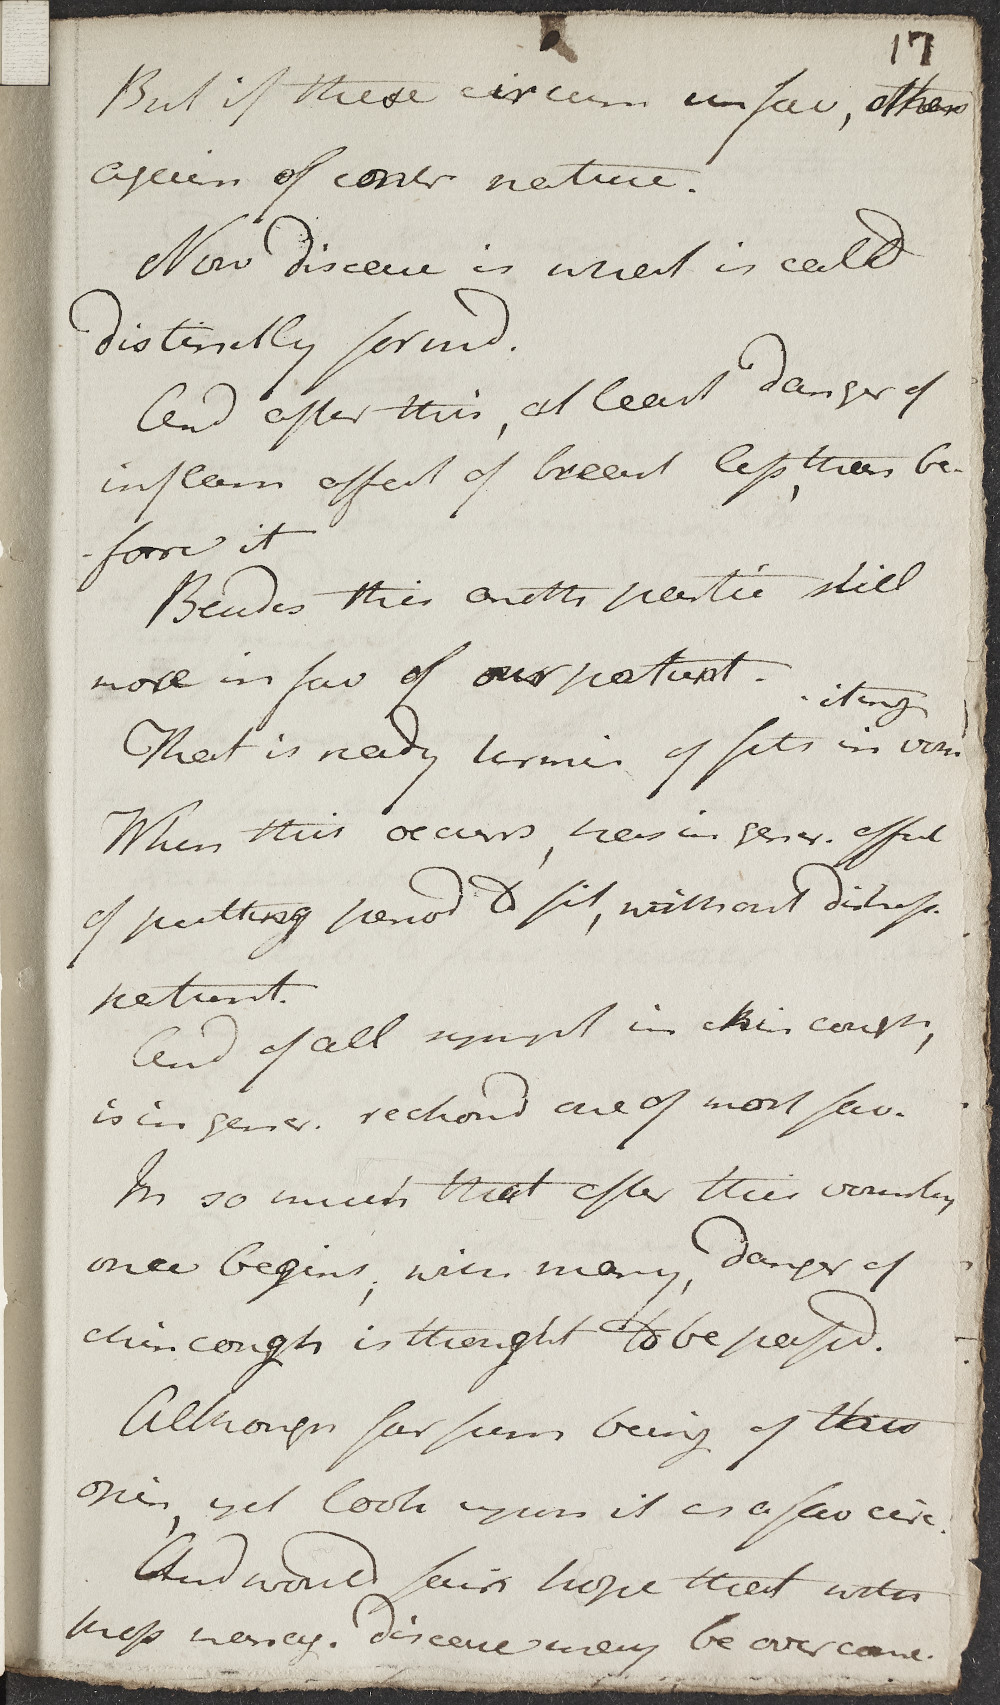 17
But if these circum unfav, others
again of contr nature.
Now disease is what is calld
distinctly formd.
And after this, at least danger of
inflam affect of breast less, than be-
-fore it
Besides this anoth partic still
more in fav of our patient.
-iting
That is ready termin of fits in vom
When this occurs, has in gener. effect
of putting period to fit, without distress.
patient.
And of all sympt in chin cough,
is in gener. reckond one of most fav.
In so much that after this vomiting
once begins, with many, danger of
chincough is thought to be passd.
Although far from being of this
opin, yet look upon it as a fav circ.
And would fain hope that with
prop manag. disease may be overcome.